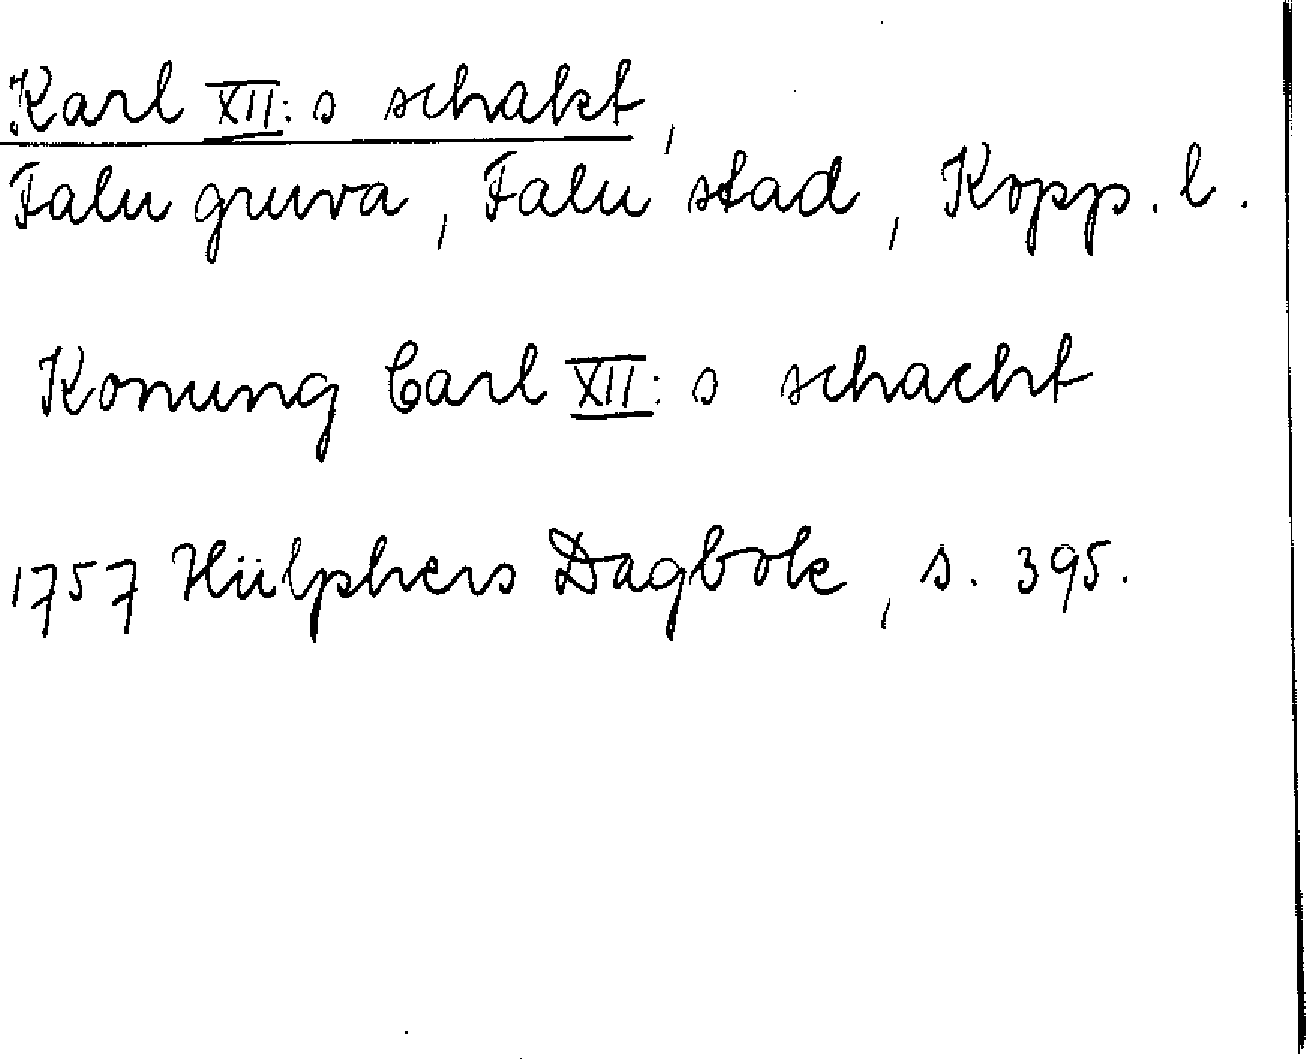 Karl XII:s schakt,
Falu gruva, Falu stad, Kopp. l.
Konung Carl XII:s schacht
1757 Hülphers Dagbok, s. 395.